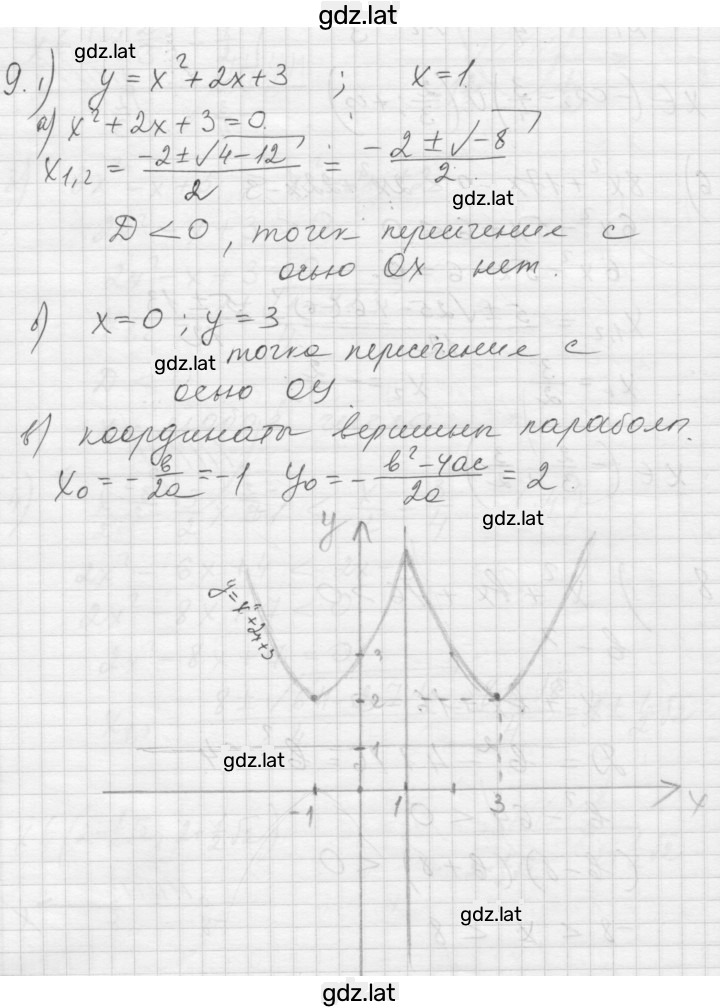 gdz.lat
gdz.lat
9. 1) y = x² + 2x + 3 ; x = 1.
а) x² + 2x + 3 = 0.
x₁,₂ = (-2 ± √(4 - 12)) / 2 = (-2 ± √(-8)) / 2.
gdz.lat
D < 0, точек пересечения с
осью Ox нет.
б) x = 0 ; y = 3
gdz.lat точка пересечения с
осью Oy
в) координаты вершины параболы.
x₀ = -в/2a = -1 y₀ = -(в² - 4ac)/2a = 2.
gdz.lat
y
y = x² + 2x + 3
3
2
1
gdz.lat
-1 1 3 x
gdz.lat
gdz.lat